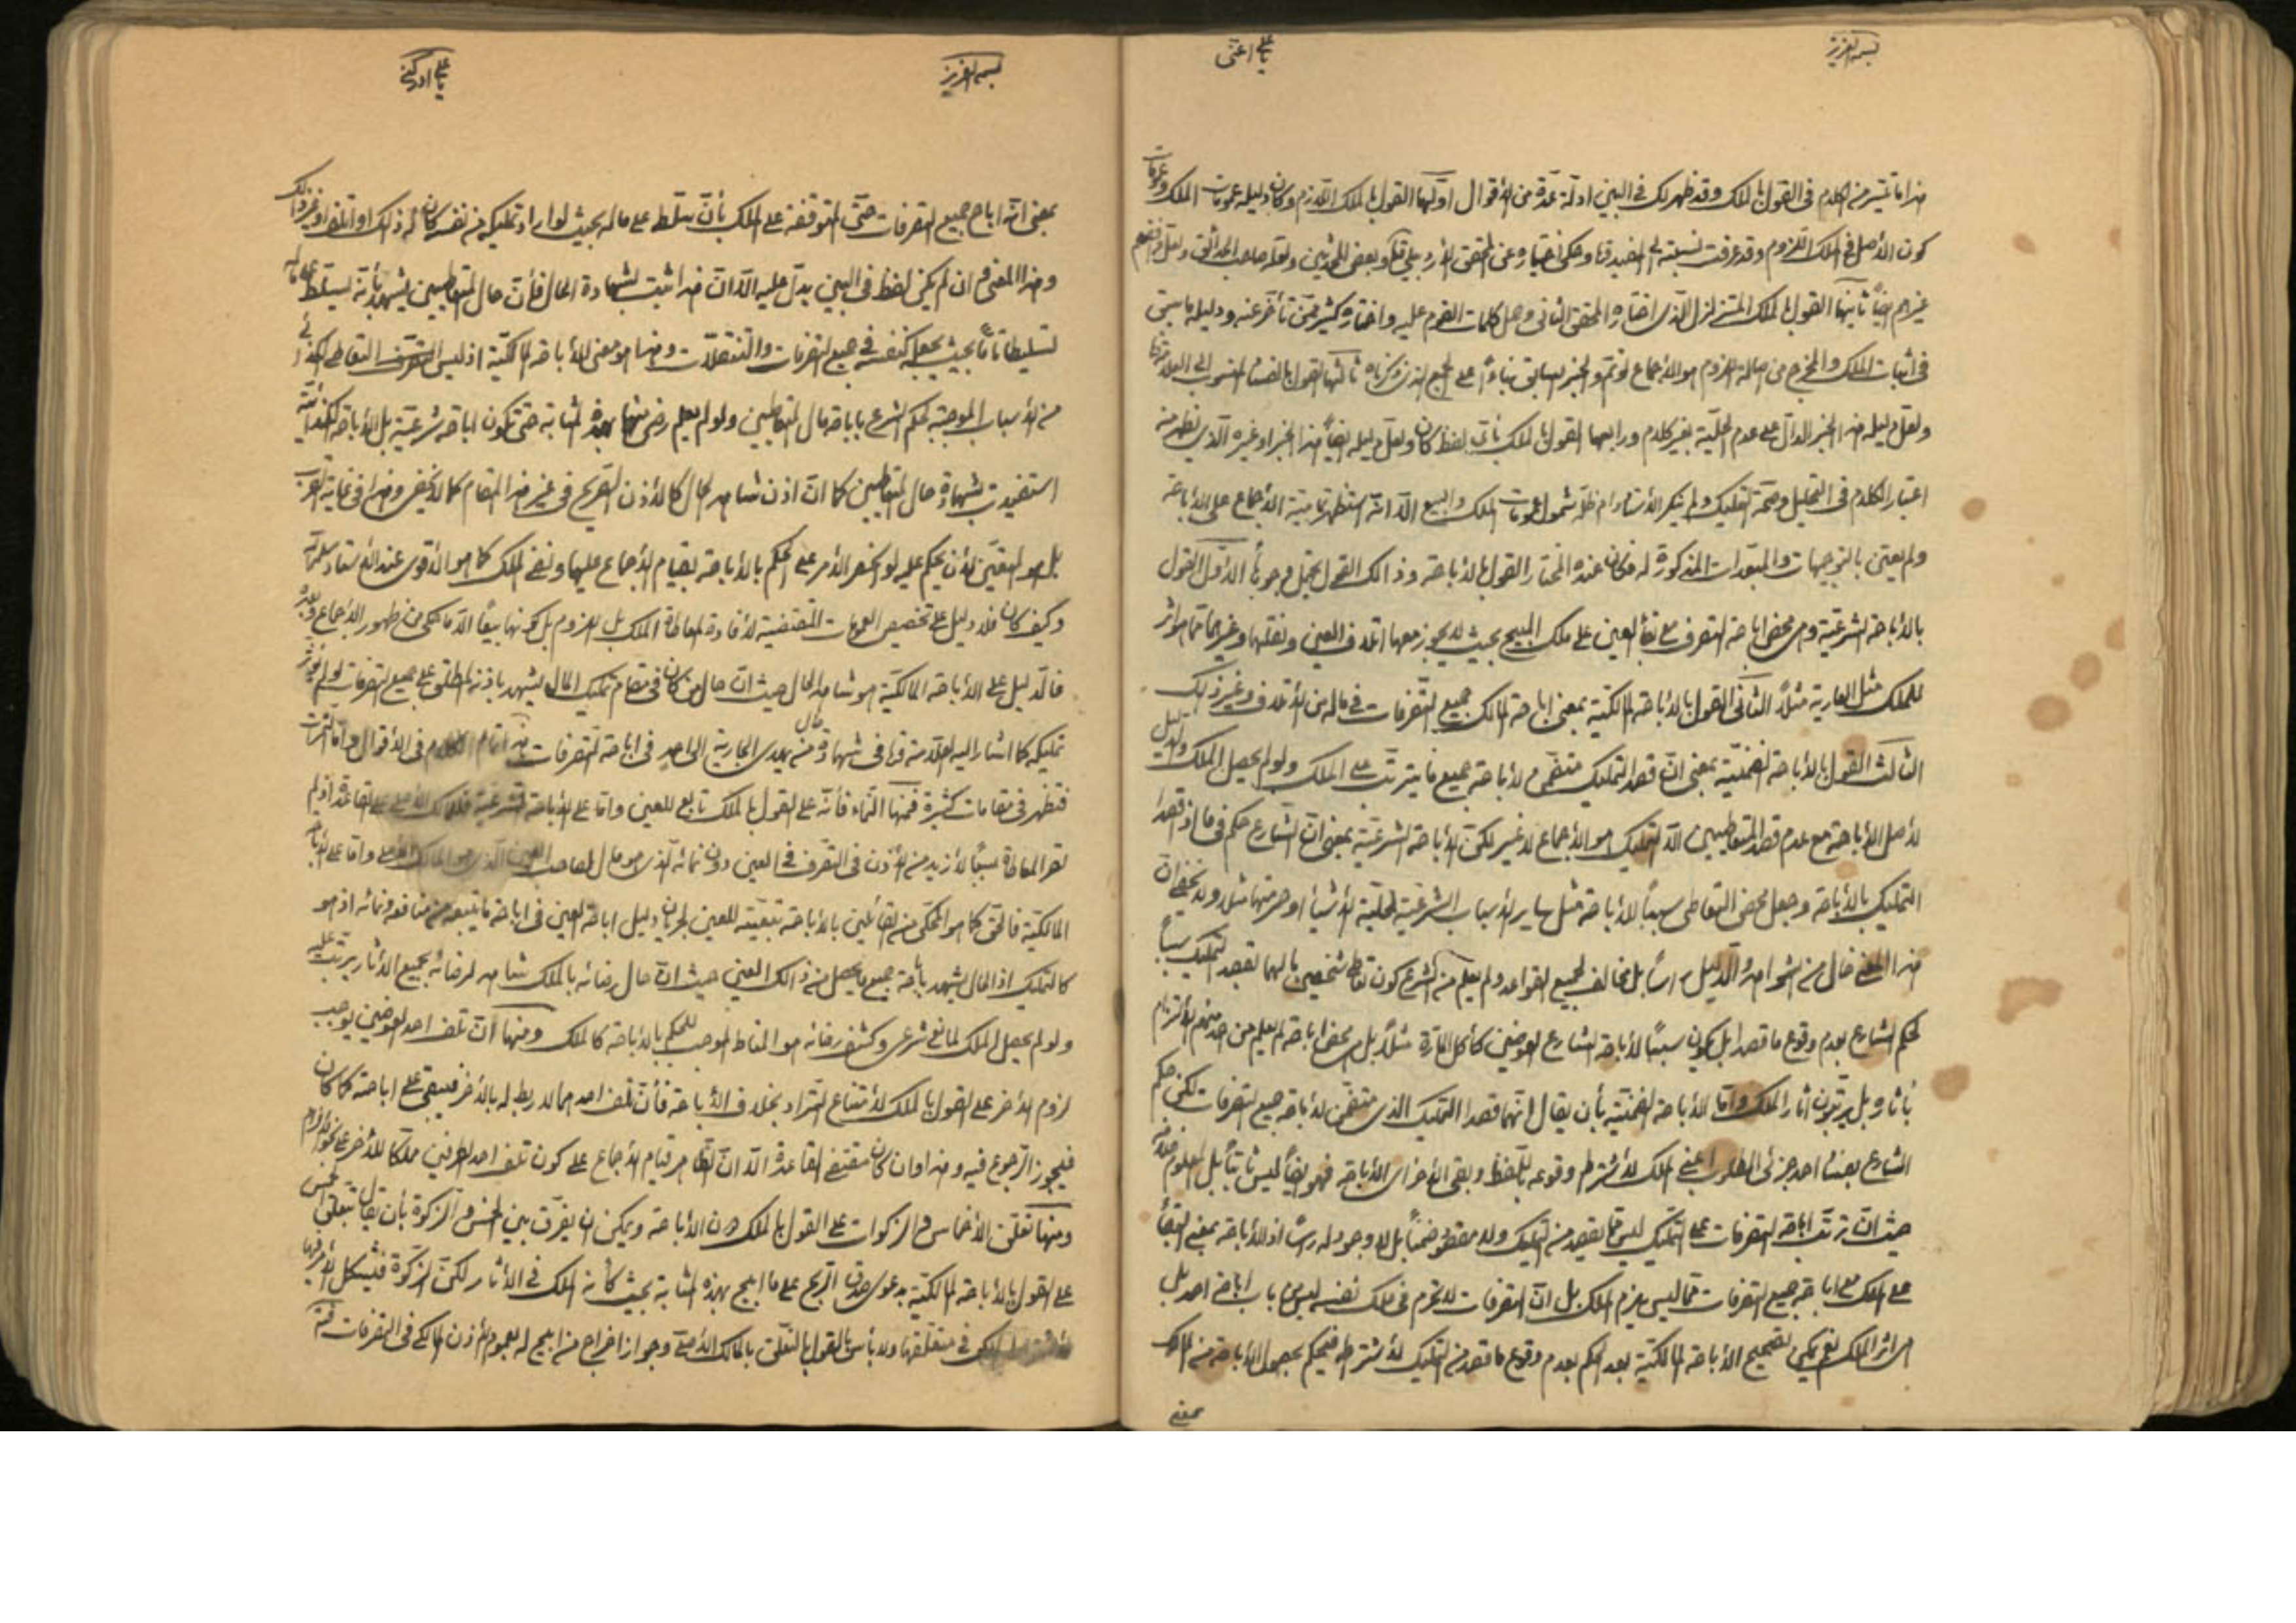 بسمه العزيز
يا علي اغثني
هذا ما تيسّر من الكلام فى القول بالملك وقد ظهر لك فى البين ادلّة عدّة من الأقوال اوّلها القول بالملك اللّازم وكان دليله عمومات الملك وعمومات
كون الأصل فى الملك اللّزوم وقد عرفت نسبته الى المفيد ره وحكى اختياره عن المحقق الأردبيلي وبعض المحدّثين ولعلّه صاحب الحدائق ولعلّ
غيرهم ايضاً ثانيها القول بالملك المتزلزل الّذى اختاره المحقق الثانى وحمل كلمات القوم عليه واختاره كثير ممّن تأخّر عنه ودليله ما سبق
فى اثبات الملك والمخرج من اصالة اللزوم هو الأجماع لو تمّ والخبر السابق بناءً على الجمع الذى ذكرناه ثالثها القول بالفساد المنسوب الى العلامة
ولعلّ دليله هذا الخبر الدالّ على عدم الحلّية بغير كلام ورابعها القول بالملك بأىّ لفظ كان ولعلّ دليله ايضاً هذا الخبر او غيره الّذى يظهر منه
اعتبار الكلام فى التحليل وصحّة التمليك ولم ينكر الأستاد دام ظلّه شمول عمومات الملك والبيع الّا انّه استظهر تماميّة الأجماع على الأباحة
ولم يعتن بالتوجيهات والمبعّدات المذكورة له فكان عنده المختار القول بالأباحة وذالك القول يحتمل وجوهاً الأوّل القول
بالأباحة الشرعيّة وهى محض اباحة التصرف مع بقاء العين على ملك المبيح بحيث لا يجوز معها اتلاف العين ونقلها وغيرهما ممّا هو اثر
للملك مثل العارية مثلاً الثّانى القول بالأباحة المالكيّة بمعنى اباحة المالك جميع التّصرفات فى ماله من الأتلاف وغير ذلك
الثالث القول بالأباحة الضمنيّة بمعنى انّ قصد التمليك متضمّن لأباحة جميع ما يترتّب على الملك ولو لم يحصل الملك والدليل
لأصل الأباحة مع عدم قصد المتعاطيين الّا التمليك هو الأجماع لا غير لكن الأباحة الشرعيّة بمعنى انّ الشّارع حكم فى ما اذا قصدا
التمليك بالأباحة وجعل محض التعاطى سبباً للأباحة مثل سائر الأسباب الشرعيّة لحلّية الأشياء او حرمتها مثلا ولا يخفى ان
هذا المعنى خال من الشواهد والدّليل رأساً بل مخالف لجميع القواعد ولم يعلم من الشرع كون تعاطى شخصين مالهما بقصد التمليك سبباً
لحكم الشارع بعدم وقوع ما قصدا بل يكون سبباً لأباحة الشارع العوضين كأكل المارّة مثلاً بل محض اباحة لم يعلم من احد منهم الألتزام
بأثاره بل يرتّبون اثار الملك وامّا الأباحة الضمنيّة بأن يقال انّهما قصدا التمليك الذى متضمّن لأباحة جميع التصرفات لكن حكم
الشارع بفساد احد جزئى المطلوب اعنى الملك لأشتراط وقوعه باللّفظ وبقى الأخر اى الأباحة فهو ايضاً ليس ثابتاً بل المعلوم خلافه
حيث انّ ترتّب اباحة التصرفات على التمليك ليس ممّا يقصد من التمليك ولا مقصود ضمناً بل لا وجود له رأساً اذ الأباحة بمعنى البقاء
على الملك مع اباحة جميع التصرفات ممّا ليس يلزم الملك بل انّ التصرفات لا تحرم فى ملك نفسه ليس من باب اباحة احد بل
هى اثر الملك نعم يمكن تصحيح الأباحة المالكيّة بعد الحكم بعدم وقوع ما قصد من التمليك لأشتراطه فيحكم بحصول الأباحة من المالك
بمعنى
بسمه العزيز
يا علي ادركني
بمعنى انّه اباح جميع التصرفات حتّى المتوقفة على الملك بأن سلّط على ماله بحيث لو اراد تمليكه من نفسه كان له ذلك او اتلافه او غير ذلك
وهذا المعنى وان لم يكن لفظ فى البين يدلّ عليه الّا انّ هذا ثبت بشهادة الحال فأنّ حال المتعاطيين يشهد بأنّه ليسلّط على ماله
تسليطاً تامّاً بحيث يجعله كنفسه فى جميع التصرفات والتّنقلات وهذا هو معنى الأباحة المالكيّة اذ ليس التعاطى
من الأسباب الموجبة لحكم الشرع باباحة مال المتعاطيين ولو لم يعلم رضى منهما بهذه المثابة حتى تكون اباحة شرعيّة بل الأباحة
استفيدت بشهادة حال المتعاطيين كما انّ اذن شاهد الحال كالأذن الصّريح فى غير هذا المقام كما لا يخفى وهذا فى غاية القرب
بل هو المتعيّن لأن يحكم عليه لو انحصر الأمر على الحكم بالأباحة بقيام الأجماع عليها ونفى الملك كما هو الأقوى عند الأستاد سلّمه
وكيف كان فلا دليل على تخصيص العمومات المقتضية لأفادة المعاطاة الملك بل اللزوم بل كونها بيعاً الّا ما حكى من ظهور الأجماع
فالدّليل على الأباحة المالكيّة هو شاهد الحال حيث انّ حال من كان فى مقام تمليك المال يشهد باذنه المطلق على جميع التصرفات ولو لم يؤثّر
تمليكه كما اشار اليه العلّامة ره فى شهادة حال من يهدى الجارية الى احد فى اباحة التّصرفات هذا تمام الكلام فى الأقوال وامّا الثمرات
فتظهر فى مقامات كثيرة فمنها النّماء فأنّه على القول بالملك تابع للعين وامّا على الأباحة الشرعيّة فللمالك الأصلى على القاعدة اذ لم
تصر المعاطاة سبباً لأزيد من الأذن فى التصرّف فى العين دون نمائه الذى هو مال لصاحب العين الّذى هو المالك الأصلى وامّا على الأباحة
المالكيّة فالحق كما هو المحكى من القائلين بالأباحة تبعيّته للعين لجريان دليل اباحة العين فى اباحة ما يتبعه من منافعه ونمائه اذ هو
كالتمليك اذ الحال يشهد باباحة جميع ما يحصل من ذالك العين حيث انّ حال رضائه بالملك شاهد لرضائه بجميع الأثار يترتّب عليه
ولو لم يحصل الملك لمانع شرعى وكشف رضائه هو المناط الموجب للحكم بالأباحة كالملك ومنها انّ تلف احد العوضين يوجب
لزوم الأخر على القول بالملك لأمتناع التّراد بخلاف الأباحة فأنّ تلف احدهما لا ربط له بالأخر فيبقى على اباحته كما كان
فيجوز الرّجوع فيه وهذا وان كان مقتضى القاعدة الّا انّ الظاهر قيام الأجماع على كون تلف احد الطرفين مملّكاً للأخر على نحو اللزوم
ومنها تعلّق الأخماس والزكوات على القول بالملك دون الأباحة ويمكن ان يفرّق بين الخمس والزكوة بأن يقال بتعلّق الخمس
على القول بالأباحة المالكيّة بدعوى صدق الرّبح على ما ابيح بهذه المثابة بحيث كأنه الملك فى الأثار لكنّ الزكوة فيشكل الأمر فيها
لأشتراط الملك فى متعلّقها ولا بأس بالقول بالتعلّق بالمالك الأصلى وجواز اخراج من ابيح له لعموم اذن المالك فى التصرفات فتمّ